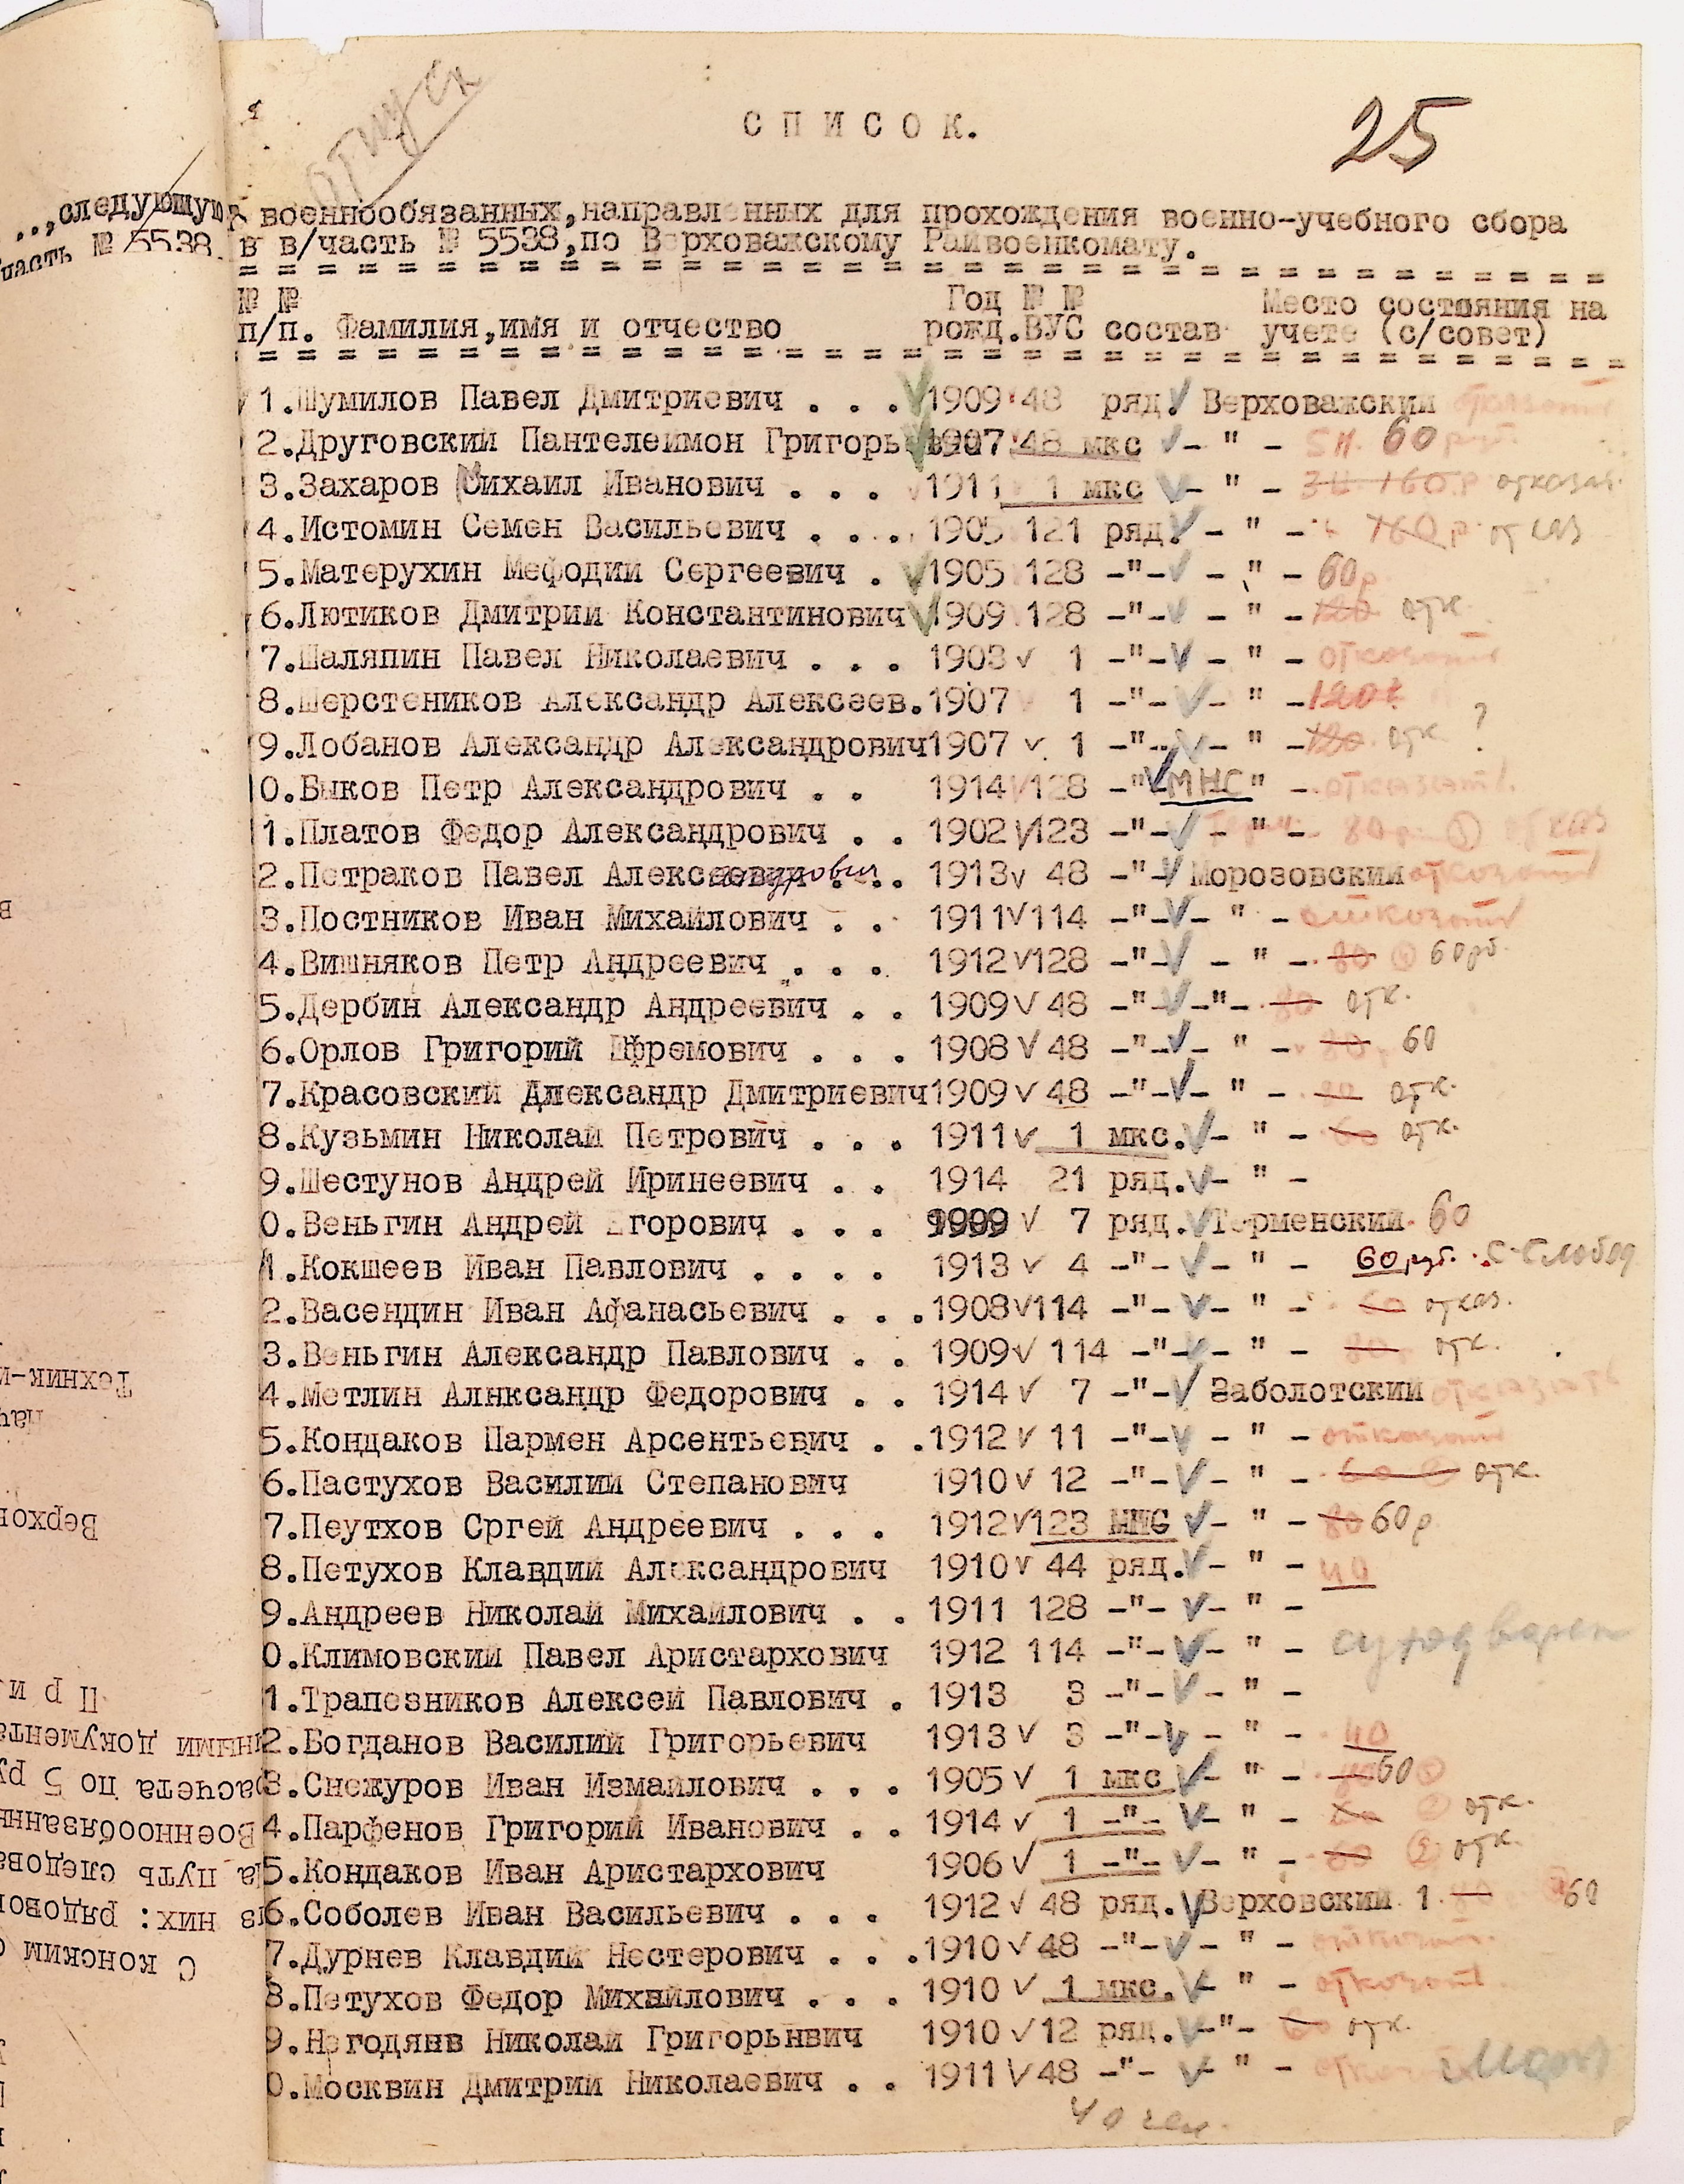 отпуск
С П И С О К.
25
военнообязанных,направленных для прохождения военно-учебного сбора
в в/часть № 5538,по Верховажскому Райвоенкомату.
№ № Год № № Место состояния на
п/п. Фамилия,имя и отчество рожд.ВУС состав учете (с/совет)
1.Шумилов Павел Дмитриевич . . . 1909 48 ряд. Верховажский отказать
2.Друговский Пантелеймон Григорьевич 1907 48 мкс - " - 5 н. 60 руб.
3.Захаров Михаил Иванович . . . 1911 1 мкс - " - 160 р отказат.
4.Истомин Семен Васильевич . . . . 1905 121 ряд. - " - 160 р отказ
5.Матерухин Мефодий Сергеевич . 1905 128 -"- - " - 60 р.
6.Лютиков Дмитрий Константинович 1909 128 -"- - " - 120 отк.
7.Шаляпин Павел Николаевич . . . 1908 1 -"- - " - отказать
8.Шерстеников Александр Алексеев. 1907 1 -"- - " - 120
9.Лобанов Александр Александрович 1907 1 -"- - " - 120 отк ?
0.Быков Петр Александрович . . 1914 128 -" МНС " - отказать
1.Платов Федор Александрович . . 1902 123 -"- - " - 80 р. отказ
2.Петраков Павел Александрович . . . 1913 48 -"- Морозовский отказать
3.Постников Иван Михайлович . . 1911 114 -"- - " - отказать
4.Вишняков Петр Андреевич . . . 1912 128 -"- - " - 80 60 рб.
5.Дербин Александр Андреевич . . 1909 48 -"- -"- 80 отк.
6.Орлов Григорий Ефремович . . . 1908 48 -"- - " - 80 60
7.Красовский Александр Дмитриевич 1909 48 -"- - " - 80 отк.
8.Кузьмин Николай Петрович . . . 1911 1 мкс. - " - 60 отк.
9.Шестунов Андрей Иринеевич . . 1914 21 ряд. - " -
0.Веньгин Андрей Егорович . . . 1909 7 ряд. Терменский 60
1.Кокшеев Иван Павлович . . . . 1913 4 -"- - " - 60 руб.
2.Васендин Иван Афанасьевич . . . 1908 114 -"- - " - 60 отказ.
3.Веньгин Александр Павлович . . 1909 114 -"- - " - 80 отк.
4.Метлин Алнксандр Федорович . . 1914 7 -"- Заболотский отказать
5.Кондаков Пармен Арсентьевич . . 1912 11 -"- - " - отказать
6.Пастухов Василий Степанович 1910 12 -"- - " - 60 отк.
7.Пеутхов Сргей Андреевич . . . 1912 123 МНС - " - 80 60 р
8.Петухов Клавдий Александрович 1910 44 ряд. - " - 40
9.Андреев Николай Михайлович . . 1911 128 -"- - " -
0.Климовский Павел Аристархович 1912 114 -"- - " -
1.Трапезников Алексей Павлович . 1913 3 -"- - " -
2.Богданов Василий Григорьевич 1913 3 -"- - " - 40
3.Снежуров Иван Измайлович . . . 1905 1 мкс - " - 60
4.Парфенов Григорий Иванович . . 1914 1 -"- - " - 60 отк.
5.Кондаков Иван Аристархович 1906 1 -"- - " - 60 отк.
6.Соболев Иван Васильевич . . . 1912 48 ряд. Верховский 1 60
7.Дурнев Клавдий Нестерович . . . 1910 48 -"- - " - отказат.
8.Петухов Федор Михайлович . . . 1910 1 мкс. - " - отказат
9.Негодянв Николай Григорьнвич 1910 12 ряд. -"- 60 отк.
0.Москвин Дмитрий Николаевич . . 1911 48 -"- - " -
40 чел.
..,следующую
часть № 5538
Техник-и
Верхов
П р и
ными документа
расчета по 5 ру
военнообязанны
на путь следова
из них: рядовог
С конским